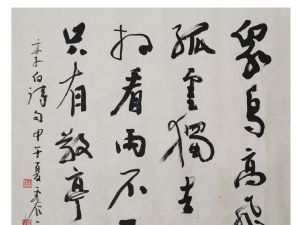 眾鳥高飛
孤雲獨去
相看兩不
只有敬亭
李白詩句甲午夏